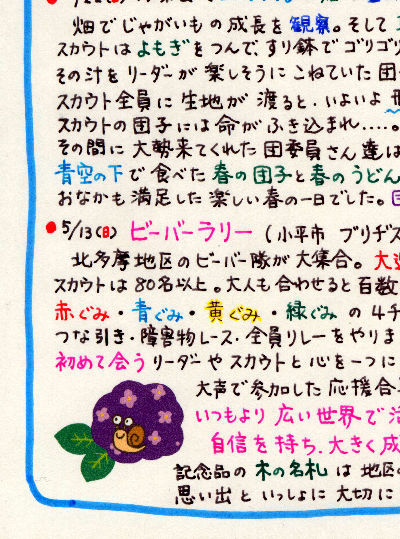 畑でじゃがいもの成長を観察。そして
スカウトはよもぎをつんで、すり鉢でゴリゴリ
その汁をリーダーが楽しそうにこねていた団
スカウト全員に生地が渡ると、いよいよ
スカウトの団子には命がふき込まれ……。
その間に大勢来てくれた団委員さん達は
青空の下で食べた春の団子と春のうどん
おなかも満足した楽しい春の一日でした。
●5/13(日) ビーバーラリー (小平市 ブリヂス
北多摩地区のビーバー隊が大集合。大
スカウトは80名以上。大人も合わせると百数
赤ぐみ・青ぐみ・黄ぐみ・緑ぐみの4チ
つな引き・障害物レース・全員リレーをやりま
初めて会うリーダーやスカウトと心を一つに
大声で参加した応援合
いつもより広い世界で活
自信を持ち、大きく成
記念品の木の名札は地区の
思い出といっしょに大切に